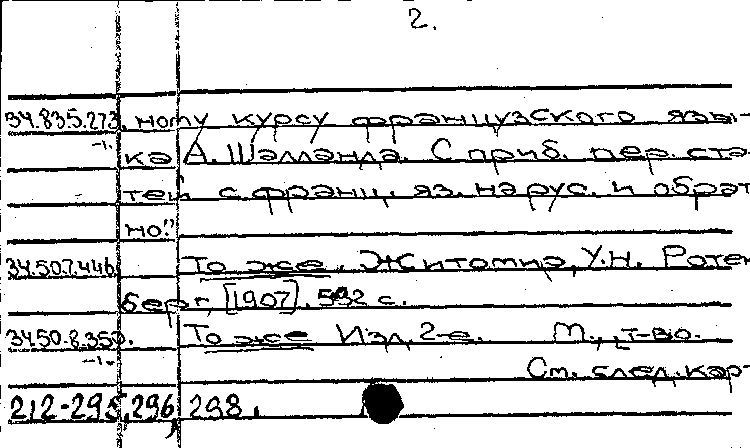 2.
34.835.273. ному курсу французского язы-
-1. ка А. Шалланда. С приб. пер. ста-
тей с франц. яз. на рус. и обрат
но."
34.507.446. То же. Житомир, У.Н. Ротен
берг, [1907]. 592 с.
3450.8.350. То же Изд. 2-е. М., т-во.
-1. См. след. кар-
212-295, 296, 298.